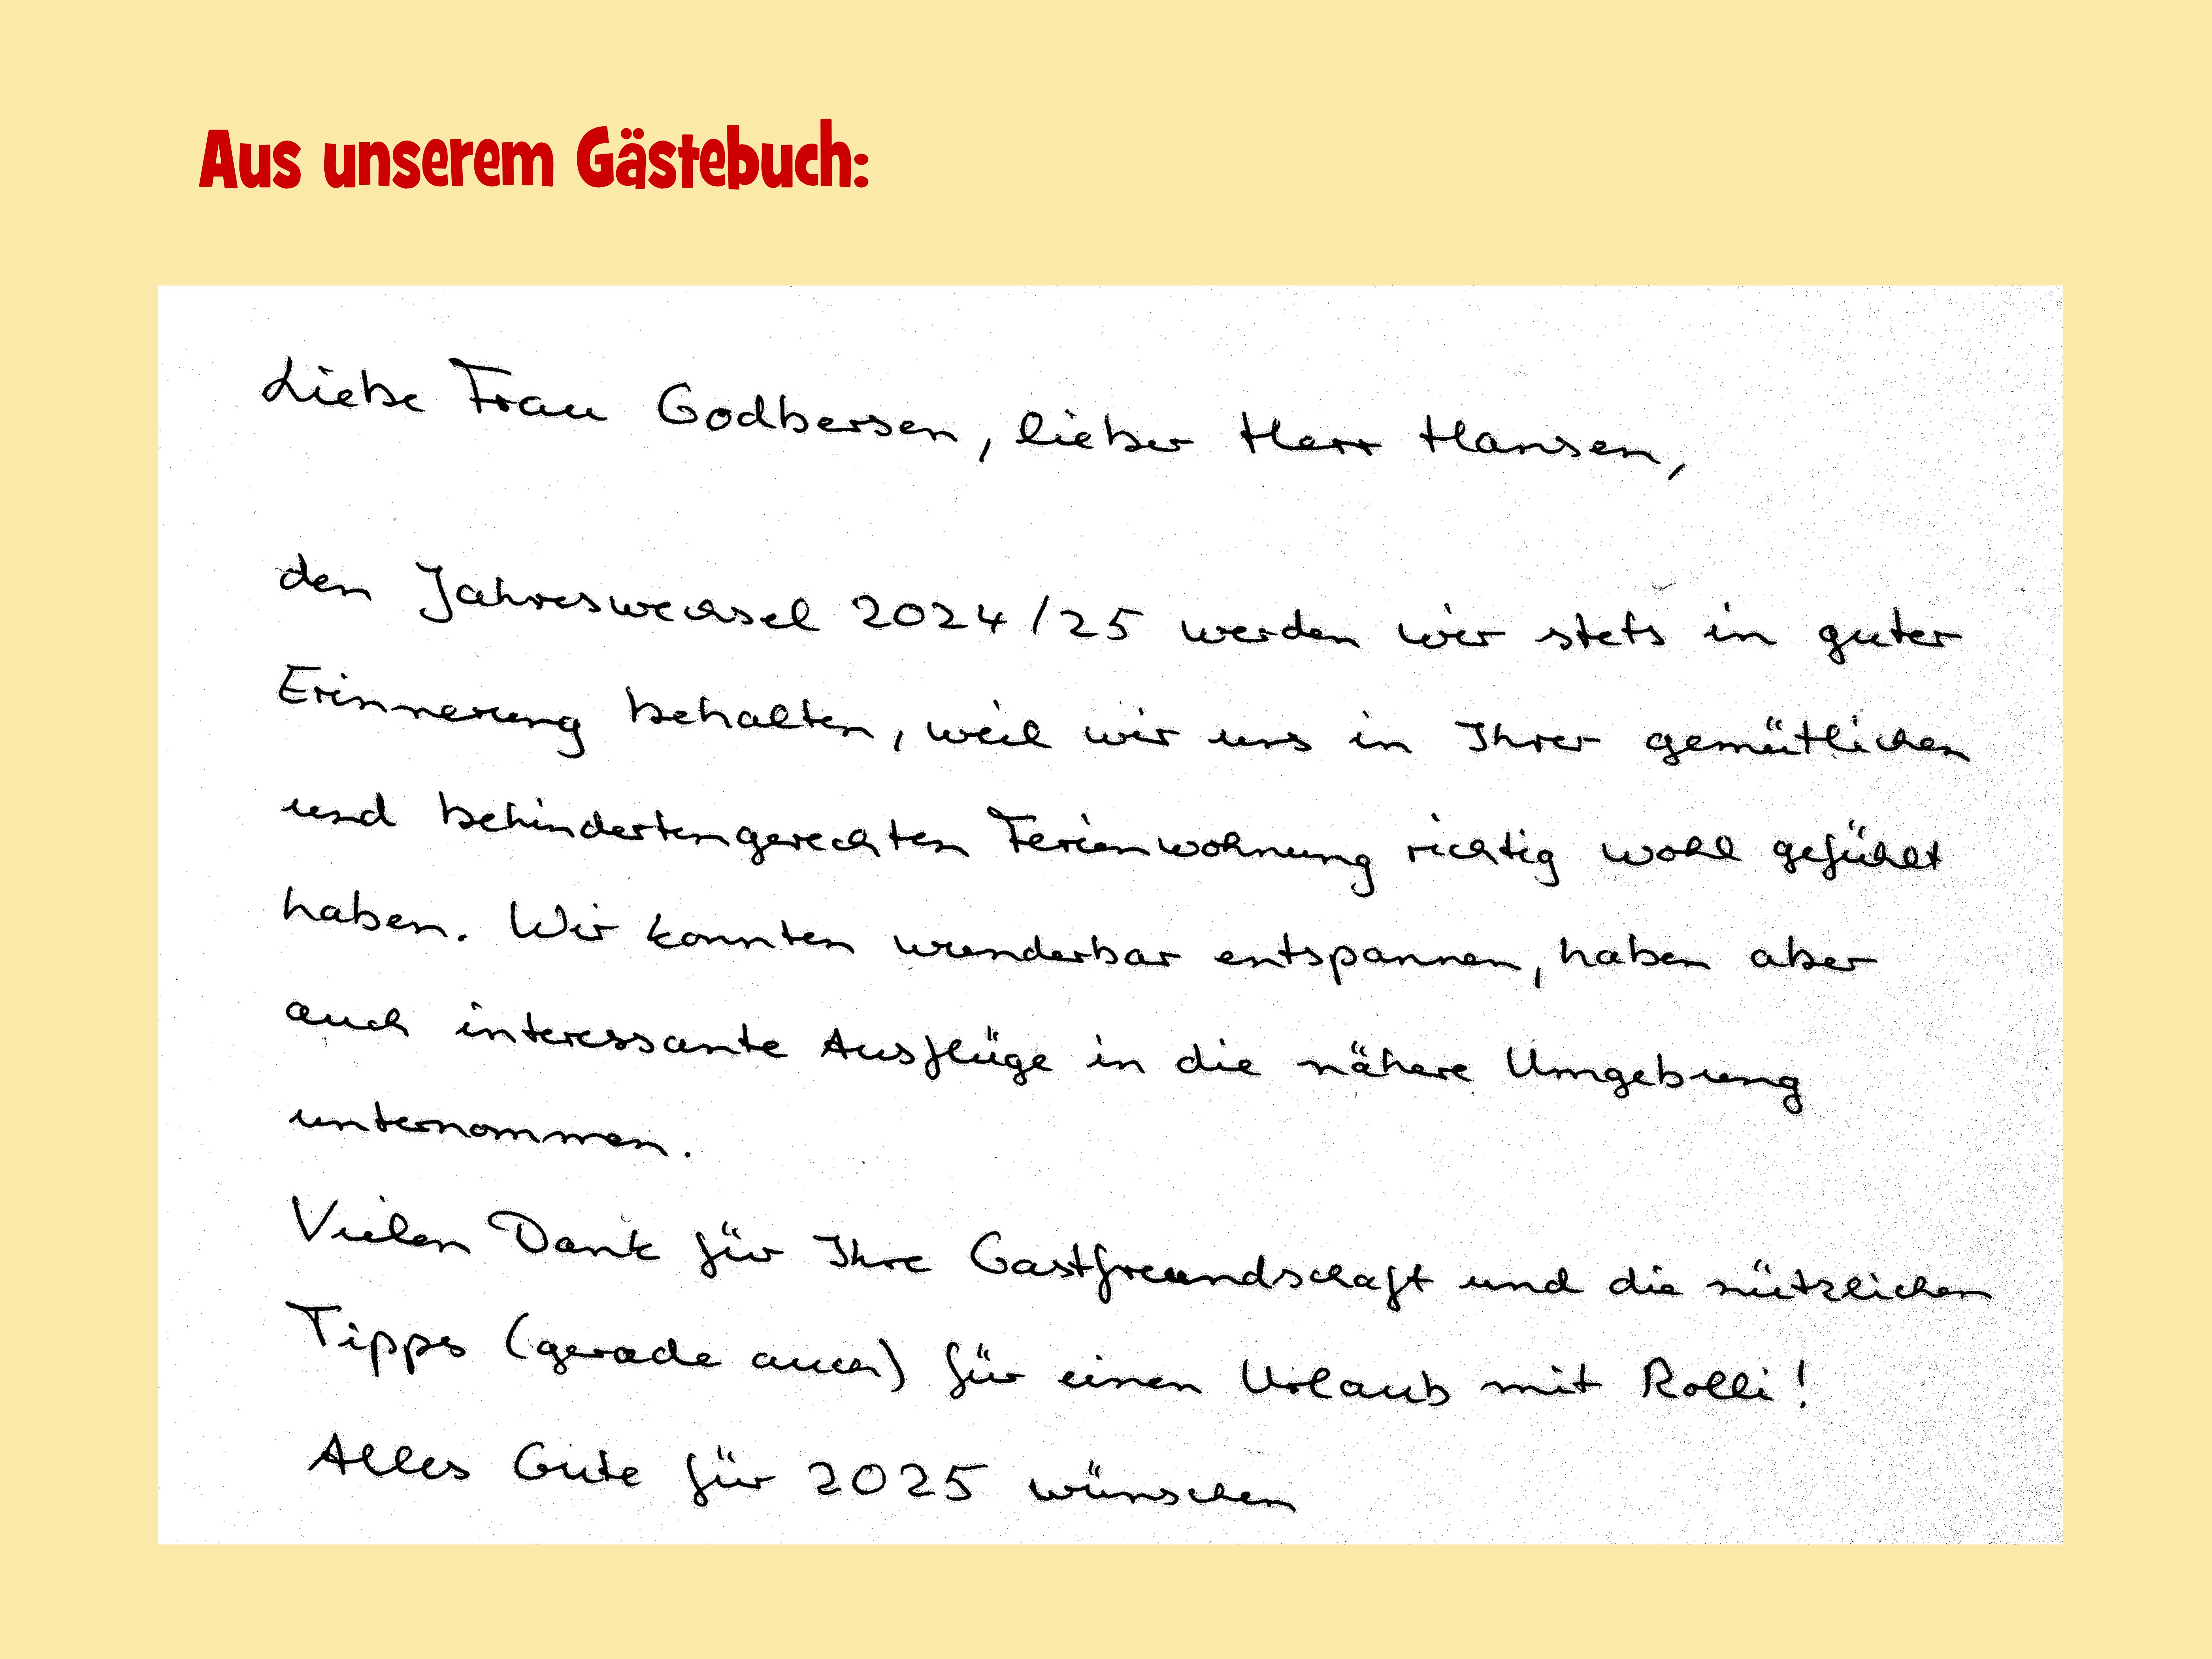 Aus unserem Gästebuch:
Liebe Frau Godbersen, lieber Herr Hansen,
den Jahreswechsel 2024/25 werden wir stets in guter
Erinnerung behalten, weil wir uns in Ihrer gemütlichen
und behindertengerechten Ferienwohnung richtig wohl gefühlt
haben. Wir konnten wunderbar entspannen, haben aber
auch interessante Ausflüge in die nähere Umgebung
unternommen.
Vielen Dank für Ihre Gastfreundschaft und die nützlichen
Tipps (gerade auch) für einen Urlaub mit Rolli!
Alles Gute für 2025 wünschen